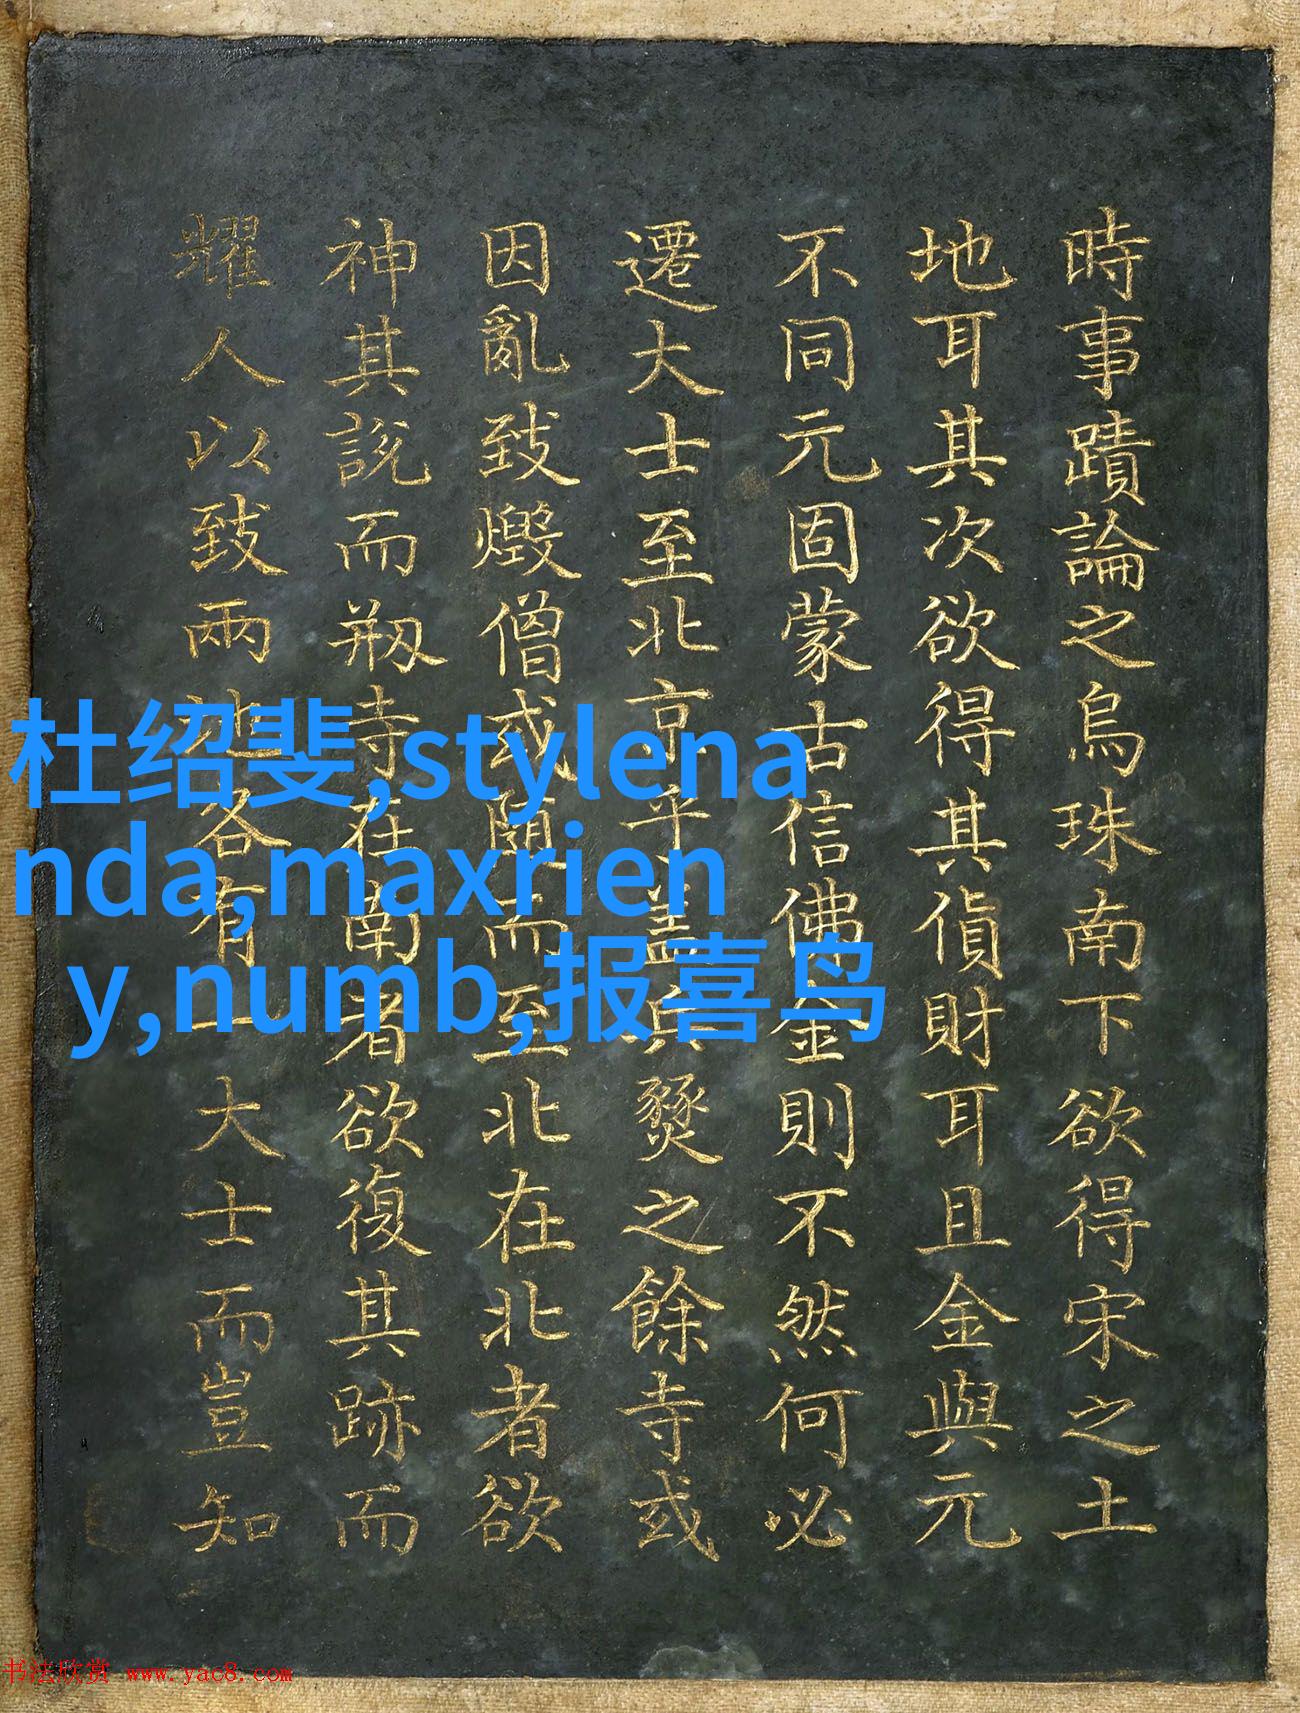 時事蹟論之烏珠南下欲得宋之土
地耳其次欲得其貨財耳且金與元
不同元固蒙古信佛金則不然何必
遷大士至北京乎蓋兵燹之餘寺或
因亂致燬僧或隨而至北在北者欲
神其說而刱寺在南者欲復其跡而
耀人以致兩地各有一大士而豈知
杜绍斐,stylena
nda,maxrien
y,numb,报喜鸟
书法欣赏 www.yac8.com